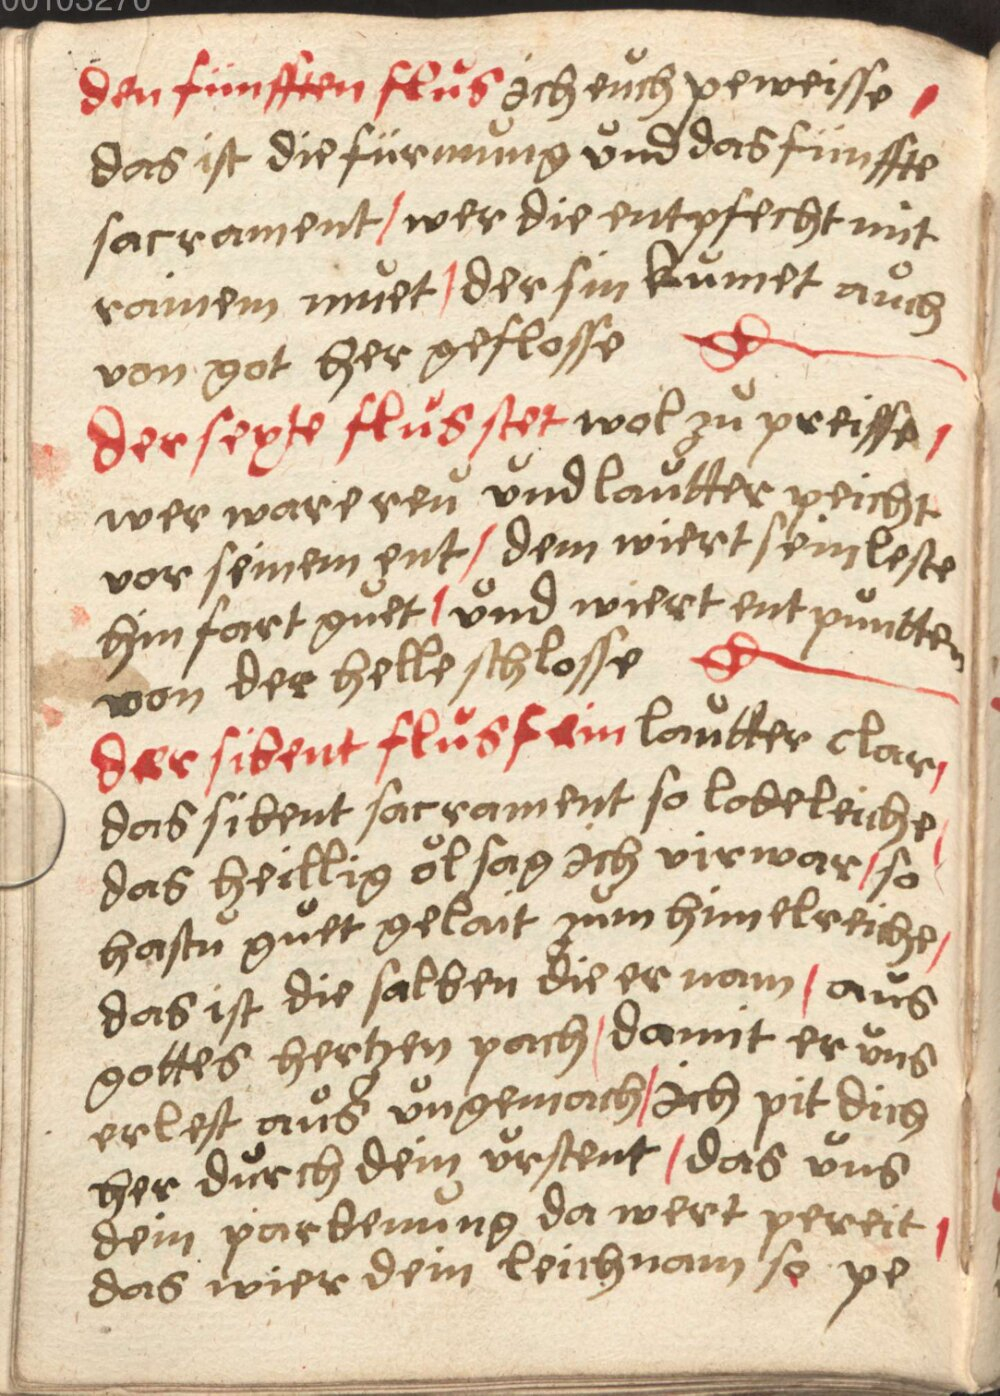 00103270
den fünfften flus ich euch peweisse /
das ist die fürmung und das fünffte
sacrament / wer die entpfecht mit
rainem muet / der sin kumet auch
von got her geflosse
der sexte flus stet wol zu preisse /
wer ware reu und lautter peicht
vor seinem ent / dem wiert sein leste
hinfart guet / und wiert entpuntten
von der helle schlosse
der sibent flus sein lautter clar /
das sibent sacrament so lobeleiche /
das heillig öl sag ich virwar / so
hastu guet gelait zum himelreiche /
das ist die salben die er nam / aus
gottes hertzen pach / damit er uns
erlest aus ungemach / ich pit dich
her durch dein urstent / das uns
dein parbenung da wert pereit /
das wier dein leichnam so pe